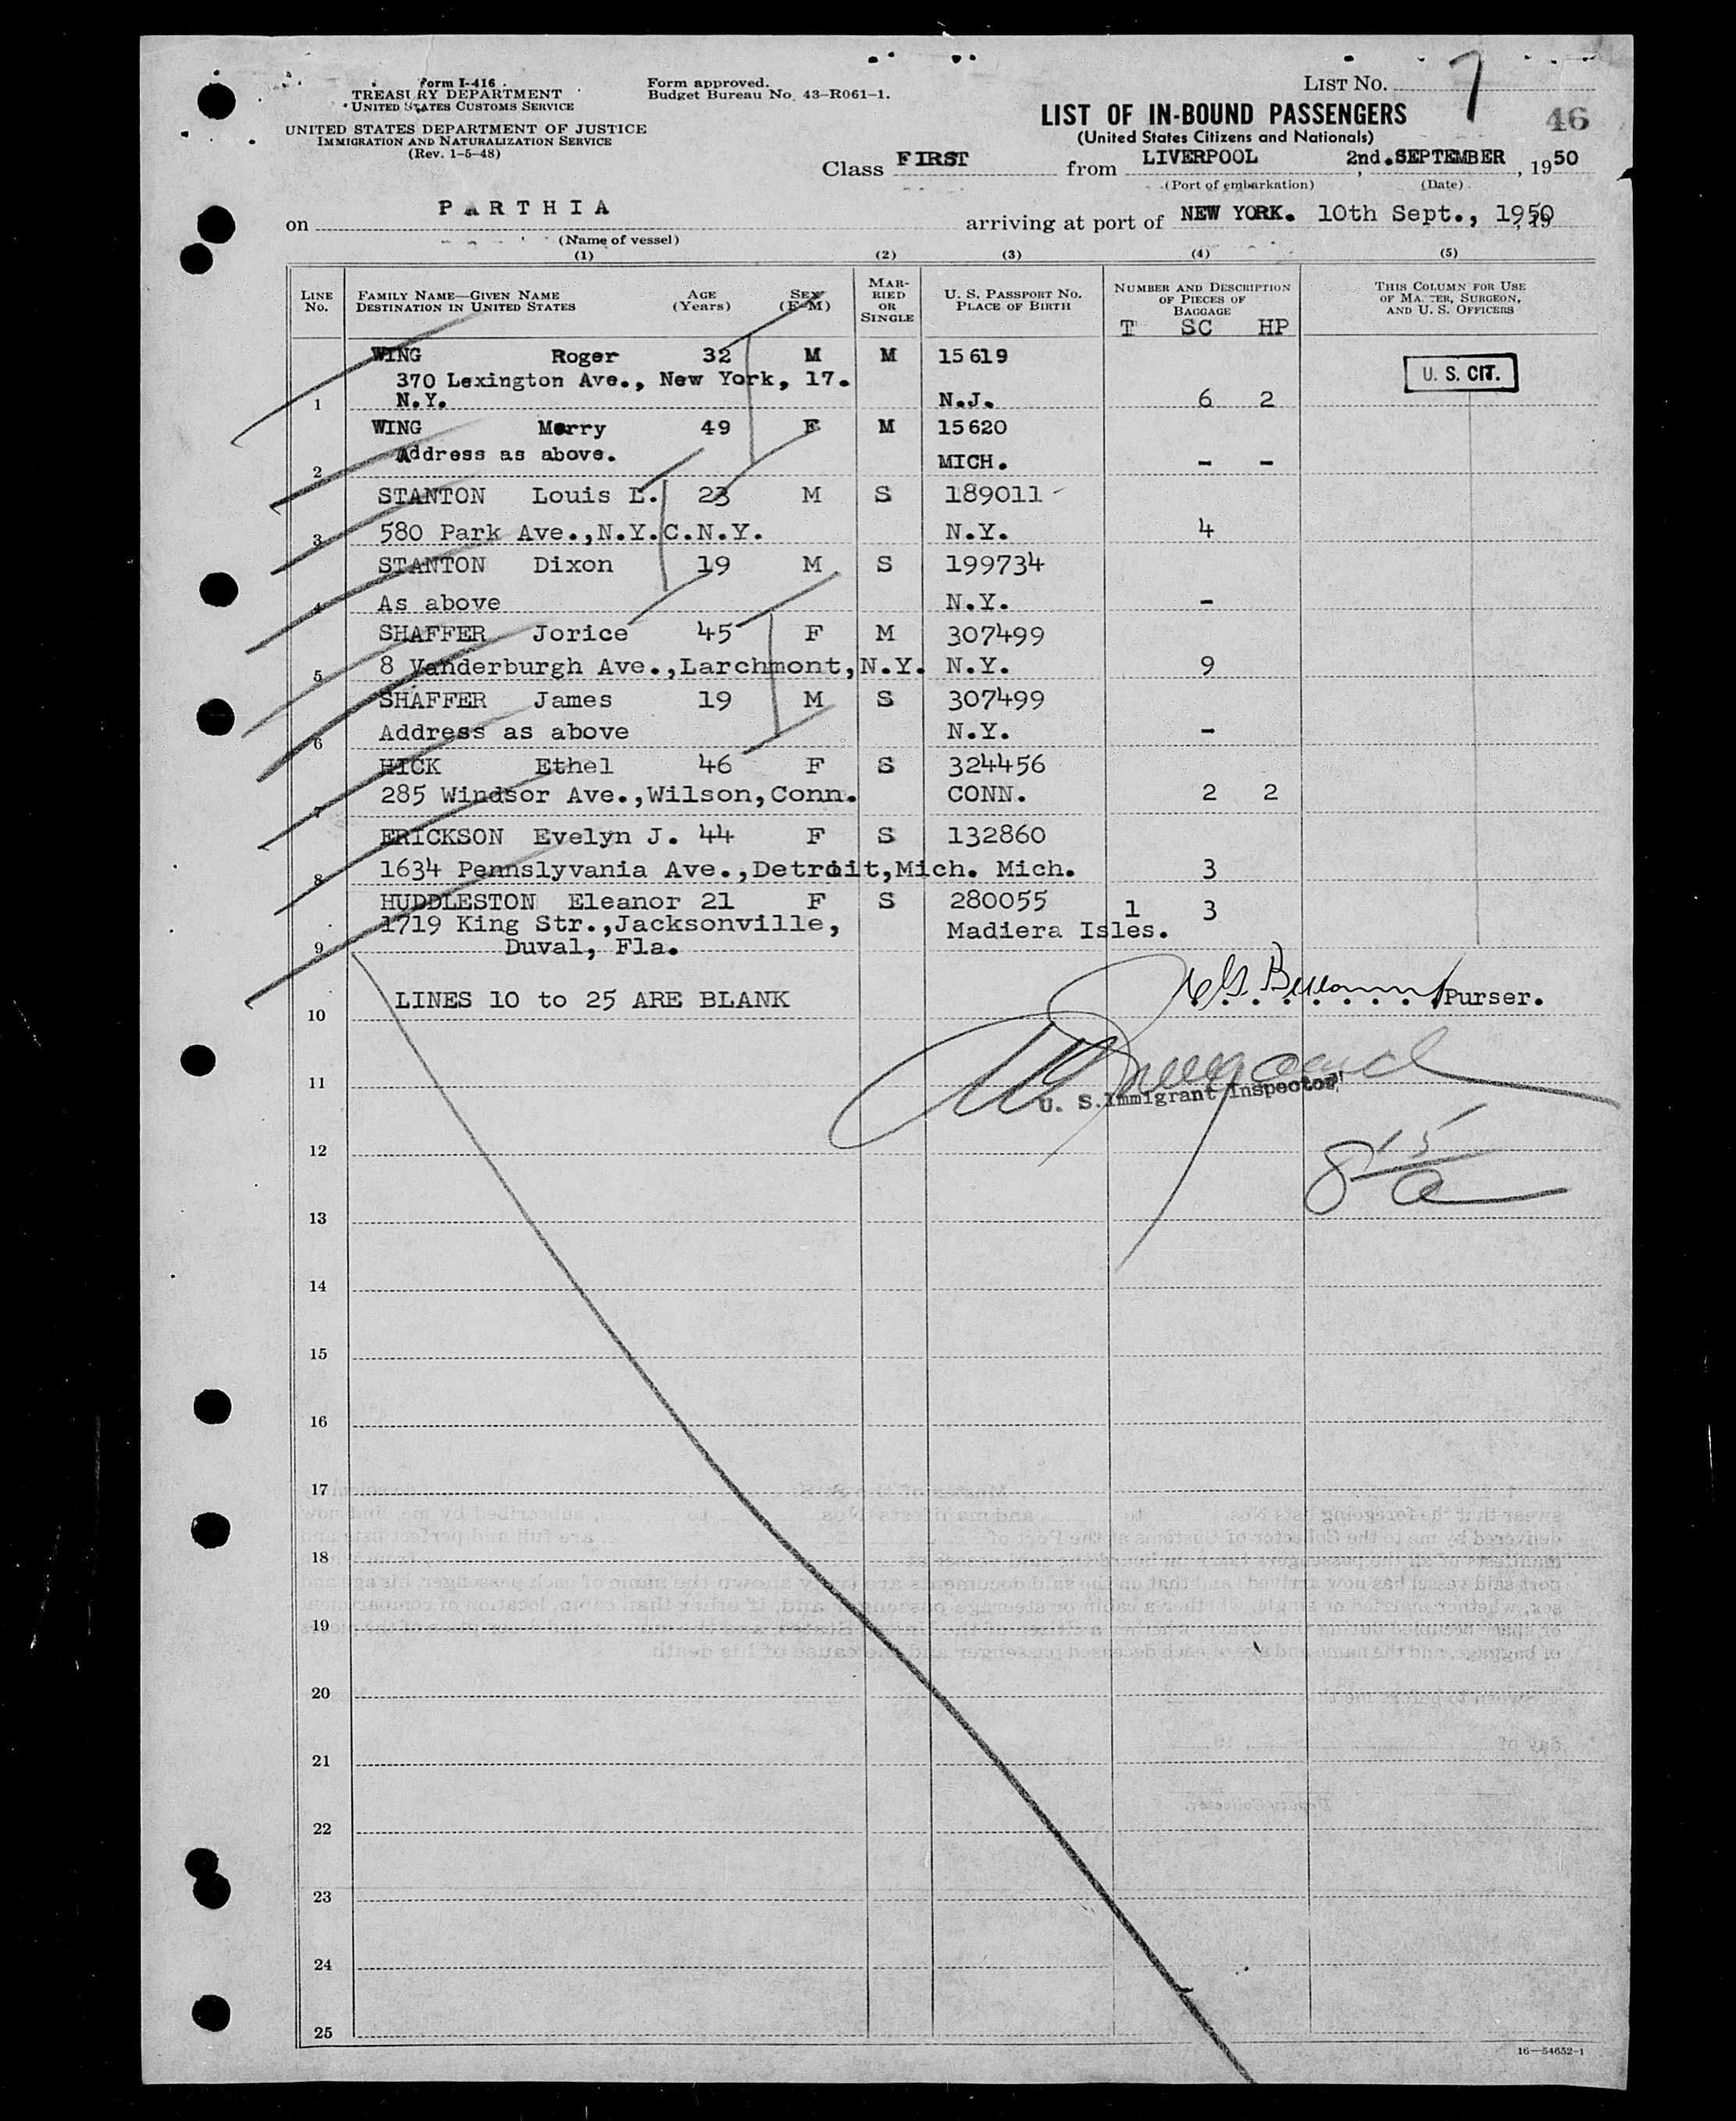 Form I-416
TREASURY DEPARTMENT
UNITED STATES CUSTOMS SERVICE
UNITED STATES DEPARTMENT OF JUSTICE
IMMIGRATION AND NATURALIZATION SERVICE
(Rev. 1-5-48)
Form approved.
Budget Bureau No. 43-R061-1.
LIST NO. 7
46
LIST OF IN-BOUND PASSENGERS
(United States Citizens and Nationals)
Class FIRST from LIVERPOOL, 2nd.SEPTEMBER, 1950
(Port of embarkation) (Date)
on PARTHIA arriving at port of NEW YORK. 10th Sept., 1950
(Name of vessel)
(1) (2) (3) (4) (5)
LINE NO. FAMILY NAME—GIVEN NAME DESTINATION IN UNITED STATES AGE (Years) SEX (F-M) MARRIED OR SINGLE U. S. PASSPORT NO. PLACE OF BIRTH NUMBER AND DESCRIPTION OF PIECES OF BAGGAGE THIS COLUMN FOR USE OF MASTER, SURGEON, AND U. S. OFFICERS
T SC HP
WING Roger 32 M M 15619
U. S. CIT.
370 Lexington Ave., New York, 17.
1 N.Y. N.J. 6 2
WING Merry 49 F M 15620
2 Address as above. MICH. - -
STANTON Louis L. 23 M S 189011
3 580 Park Ave.,N.Y.C.N.Y. N.Y. 4
STANTON Dixon 19 M S 199734
4 As above N.Y. -
SHAFFER Jorice 45 F M 307499
5 8 Vanderburgh Ave.,Larchmont,N.Y. N.Y. 9
SHAFFER James 19 M S 307499
6 Address as above N.Y. -
HICK Ethel 46 F S 324456
7 285 Windsor Ave.,Wilson,Conn. CONN. 2 2
ERICKSON Evelyn J. 44 F S 132860
8 1634 Pennslyvania Ave.,Detroit,Mich. Mich. 3
HUDDLESTON Eleanor 21 F S 280055 1 3
1719 King Str.,Jacksonville, Madiera Isles.
9 Duval, Fla.
LINES 10 to 25 ARE BLANK
Purser.
10
11
U. S. Immigrant Inspector
12
13
14
15
16
17
18
19
20
21
22
23
24
25
16—54652-1